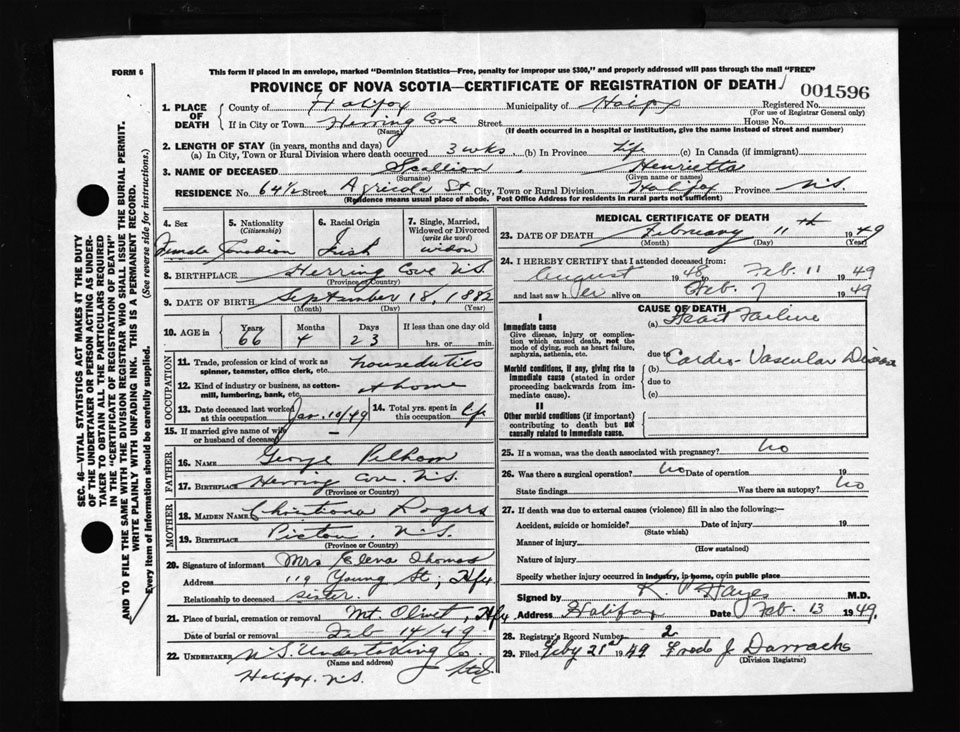 FORM 6
This form if placed in an envelope, marked "Dominion Statistics—Free, penalty for improper use $300," and properly addressed will pass through the mail "FREE"
PROVINCE OF NOVA SCOTIA—CERTIFICATE OF REGISTRATION OF DEATH
001596
1. PLACE OF DEATH
County of Halifax Municipality of Halifax Registered No.
(For use of Registrar General only)
If in City or Town Herring Cove Street House No.
(Name) (If death occurred in a hospital or institution, give the name instead of street and number)
2. LENGTH OF STAY (in years, months and days)
(a) In City, Town or Rural Division where death occurred 3 wks. (b) In Province Life (c) In Canada (if immigrant)
3. NAME OF DECEASED , Henrietta
(Surname) (Given name or names)
RESIDENCE No. 64½ Street Agricola St City, Town or Rural Division Halifax Province N.S.
(Residence means usual place of abode. Post Office Address for residents in rural parts not sufficient)
4. Sex
Female
5. Nationality
(Citizenship)
Canadian
6. Racial Origin
Irish
7. Single, Married, Widowed or Divorced
(write the word)
widow
8. BIRTHPLACE Herring Cove N.S.
(Province or Country)
9. DATE OF BIRTH September 18, 1882
(Month) (Day) (Year)
10. AGE in
Years Months Days If less than one day old
66 4 23 hrs. or min.
OCCUPATION
11. Trade, profession or kind of work as spinner, teamster, office clerk, etc. houseduties
12. Kind of industry or business, as cotton-mill, lumbering, bank, etc. at home
13. Date deceased last worked at this occupation Jan. 10/49
14. Total yrs. spent in this occupation Life
15. If married give name of wife or husband of deceased —
FATHER
16. NAME George Pelham
17. BIRTHPLACE Herring Cove. N.S.
(Province or Country)
MOTHER
18. MAIDEN NAME Christiana Rogers
19. BIRTHPLACE Pictou, N.S.
(Province or Country)
20. Signature of informant Mrs Elena Thomas
Address 119 Young St., Hfx
Relationship to deceased sister.
21. Place of burial, cremation or removal Mt. Olivet, Hfx
Date of burial or removal Feb 14/49
22. UNDERTAKER N.S. Undertaking Co. Ltd.
(Name and address)
Halifax, N.S.
MEDICAL CERTIFICATE OF DEATH
23. DATE OF DEATH February 11th 1949
(Month) (Day) (Year)
24. I HEREBY CERTIFY that I attended deceased from:
August 1948 to Feb. 11 1949
and last saw her alive on Feb. 7 1949
CAUSE OF DEATH
I
Immediate cause
Give disease, injury or complication which caused death, not the mode of dying, such as heart failure, asphyxia, asthenia, etc.
(a) Heart Failure
due to
Morbid conditions, if any, giving rise to immediate cause (stated in order proceeding backwards from immediate cause).
(b) Cardio-Vascular Disease
due to
(c)
II
Other morbid conditions (if important) contributing to death but not causally related to immediate cause.
25. If a woman, was the death associated with pregnancy? no
26. Was there a surgical operation? no Date of operation 19
State findings Was there an autopsy? no
27. If death was due to external causes (violence) fill in also the following:—
Accident, suicide or homicide? Date of injury 19
(State which)
Manner of injury
(How sustained)
Nature of injury
Specify whether injury occurred in industry, in home, or in public place
Signed by K. Hayes M.D.
Address Halifax Date Feb. 13 1949.
28. Registrar's Record Number 2
29. Filed Feby 21st 1949 Fredo J. Darrachs
(Division Registrar)
SEC. 46—VITAL STATISTICS ACT MAKES IT THE DUTY
OF THE UNDERTAKER OR PERSON ACTING AS UNDER-
TAKER TO OBTAIN ALL THE PARTICULARS REQUIRED
IN THE "CERTIFICATE OF REGISTRATION OF DEATH"
AND TO FILE THE SAME WITH THE DIVISION REGISTRAR WHO SHALL ISSUE THE BURIAL PERMIT.
WRITE PLAINLY WITH UNFADING INK. THIS IS A PERMANENT RECORD.
Every item of information should be carefully supplied. (See reverse side for instructions.)